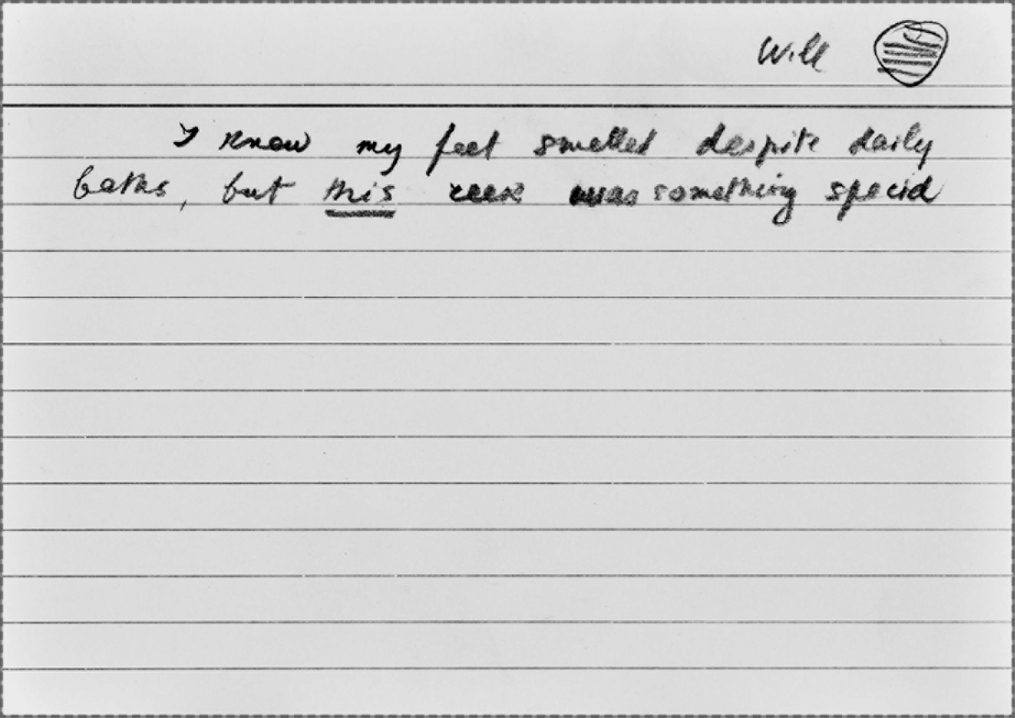 Will
I know my feet smelled despite daily
baths, but this reek was something special